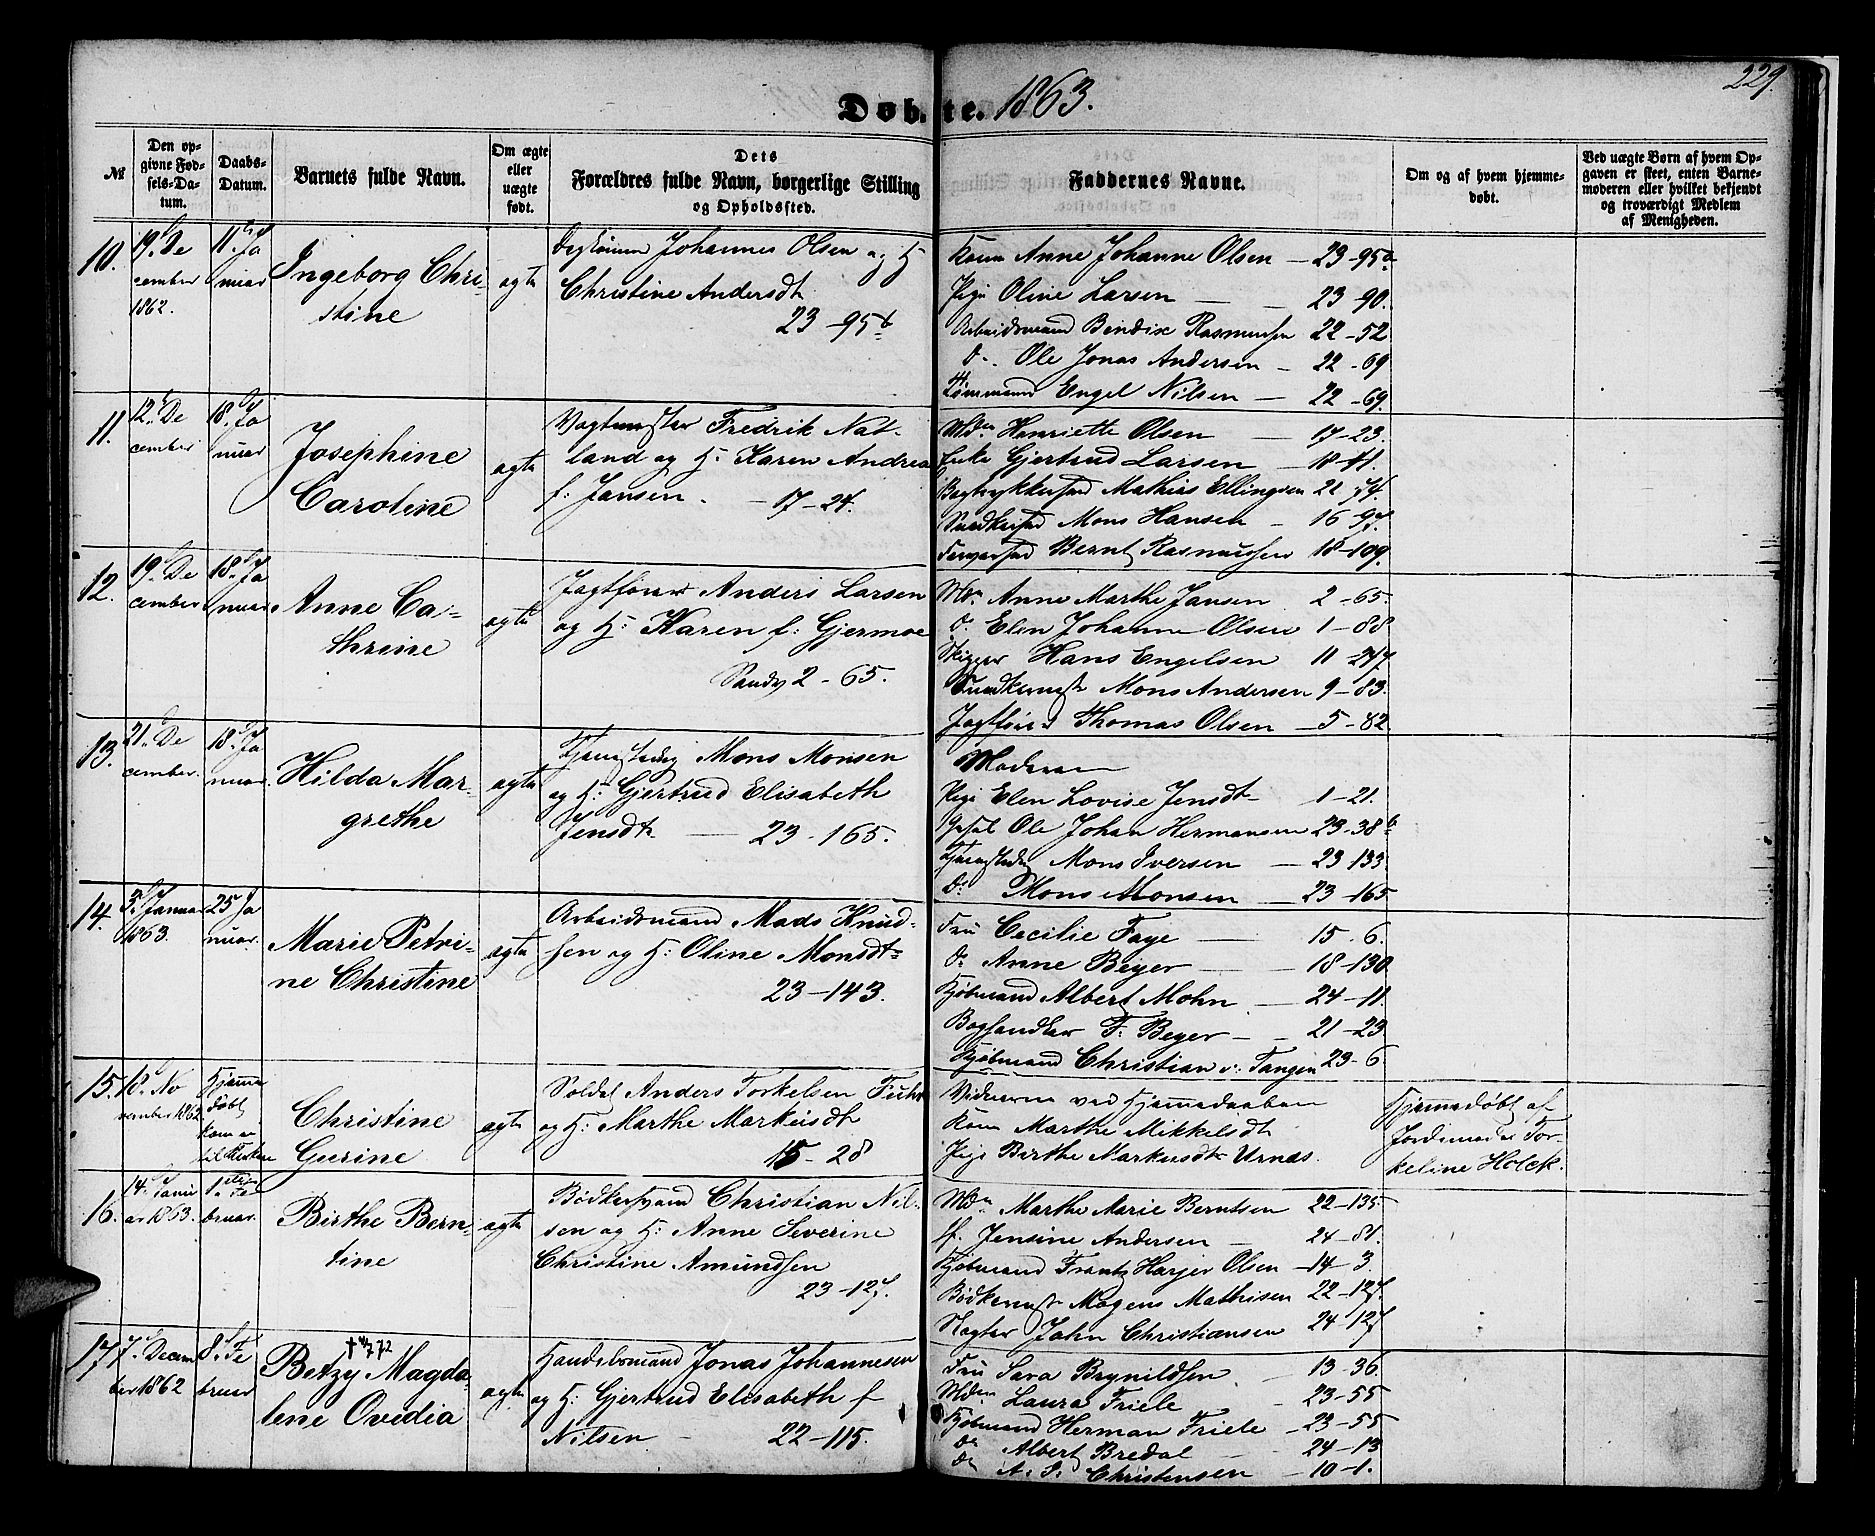 229.
Døbte. 1863.
№
Den op-
givne Fød-
sels-Da-
tum.
Daabs-
Datum.
Barnets fulde Navn.
Om ægte
eller
uægte
født.
Dets
Forældres fulde Navn, borgerlige Stilling
og Opholdssted.
Faddernes Navne.
Om og af hvem hjemme-
døbt.
Ved uægte Børn af hvem Op-
gaven er skeet, enten Barne-
moderen eller hvilket bekjendt
og troværdigt Medlem
af Menigheden.
10.
19. De
cember
1862.
11. Ja
nuar
Ingeborg Chri-
stine
ægte
Johannes Olsen og H.
Christine Andersdt.
23-95b
Kone Anne Johanne Olsen - 23-95b
Pige Oline Larsen - 23-90.
Arbeidsmand Bendix Rasmussen 22-52
do. Ole Jonas Andersen - 22-69
Tømmermand Engel Nilsen - 22-69.
11.
12. De
cember
18. Ja
nuar
Josephine
Caroline
ægte
Vagtmester Fredrik Nat-
land og H. Karen Andrea
f. Jansen. - 17-24.
Mdm Henriette Olsen - 17-23.
Enke Gjertrud Larsen - 18-11.
Bogtrykkersvd Mathias Ellingsen 21-74.
Snedkersvd Mons Hansen - 16-97.
Farversvd Bernt Rasmussen 18-109.
12.
19. De
cember
18. Ja
nuar
Anne Ca-
thrine
ægte
Jagtfører Anders Larsen
og H: Karen f. Gjermoe
Sandv 2-65.
Mdm Anne Marthe Jansen 2-65.
do. Elen Johanne Olsen 1-88
Skipper Hans Engelsen 11-247
Snedkermstr Mons Andersen 9-83.
Jagtfører Thomas Olsen - 5-82.
13.
21. De
cember.
18. Ja
nuar.
Hilda Mar-
grethe
ægte
Mons Monsen
og H: Gjertrud Elisabeth
Jensdt. - 23-165.
Moderen
Pige Elen Lovise Jensdt - 1-21.
Ole Johan Hermansen 23-38b
Mons Iversen - 23-133
do: Mons Monsen - 23-165
14.
3. Januar
1863.
25 Ja
nuar.
Marie Petri-
ne Christine
ægte
Arbeidsmand Mads Knud-
sen og H: Oline Monsdt-
23-143.
Fru Cecilie Faye - 15-6.
do. Anne Beyer - 18-130
Kjøbmand Albert Mohn - 24-11.
Boghandler F. Beyer - 21-23
Kjøbmand Christian v. Tangen 23-6
15.
18. No
vember 1862
Hjemme
døbt
kom
til Kirken
Christine
Gurine
ægte
Soldat Anders Torkelsen
og H: Marthe Markusdt
15-28
Viderne ved Hjemmedaaben
Kone Marthe Mikkelsdt
Pige Birthe Markusdt Urnæs.
Hjemmedøbt af
Jordemoder Tor-
keline Holck.
16.
14. Janu
ar 1863.
1ste Fe
bruar.
Birthe Bern-
tine
ægte
Bødkersvend Christian Nil-
sen og H: Anne Severine
Christine Amundsen
23-127.
Mdm Marthe Marie Berntsen 22-135
Jensine Andersen - 24-81.
Kjøbmand Frantz Harjer Olsen - 14-3.
Bødkermstr Mogens Mathisen 22-127.
Vægter John Christiansen 24-127
17.
7. Decem
ber 1862
8. Fe
bruar
Betzy Magda-
lene Ovedia
ægte
Handelsmand Jonas Johannesen
og H: Gjertrud Elisabeth f
Nilsen - 22-115.
Fru Sara Brynildsen - 13-36.
Mdm Laura Friele - 23-55
Kjøbmand Herman Friele - 23-55
do Albert Bredal - 24-13
do A. S. Christensen - 10-1.